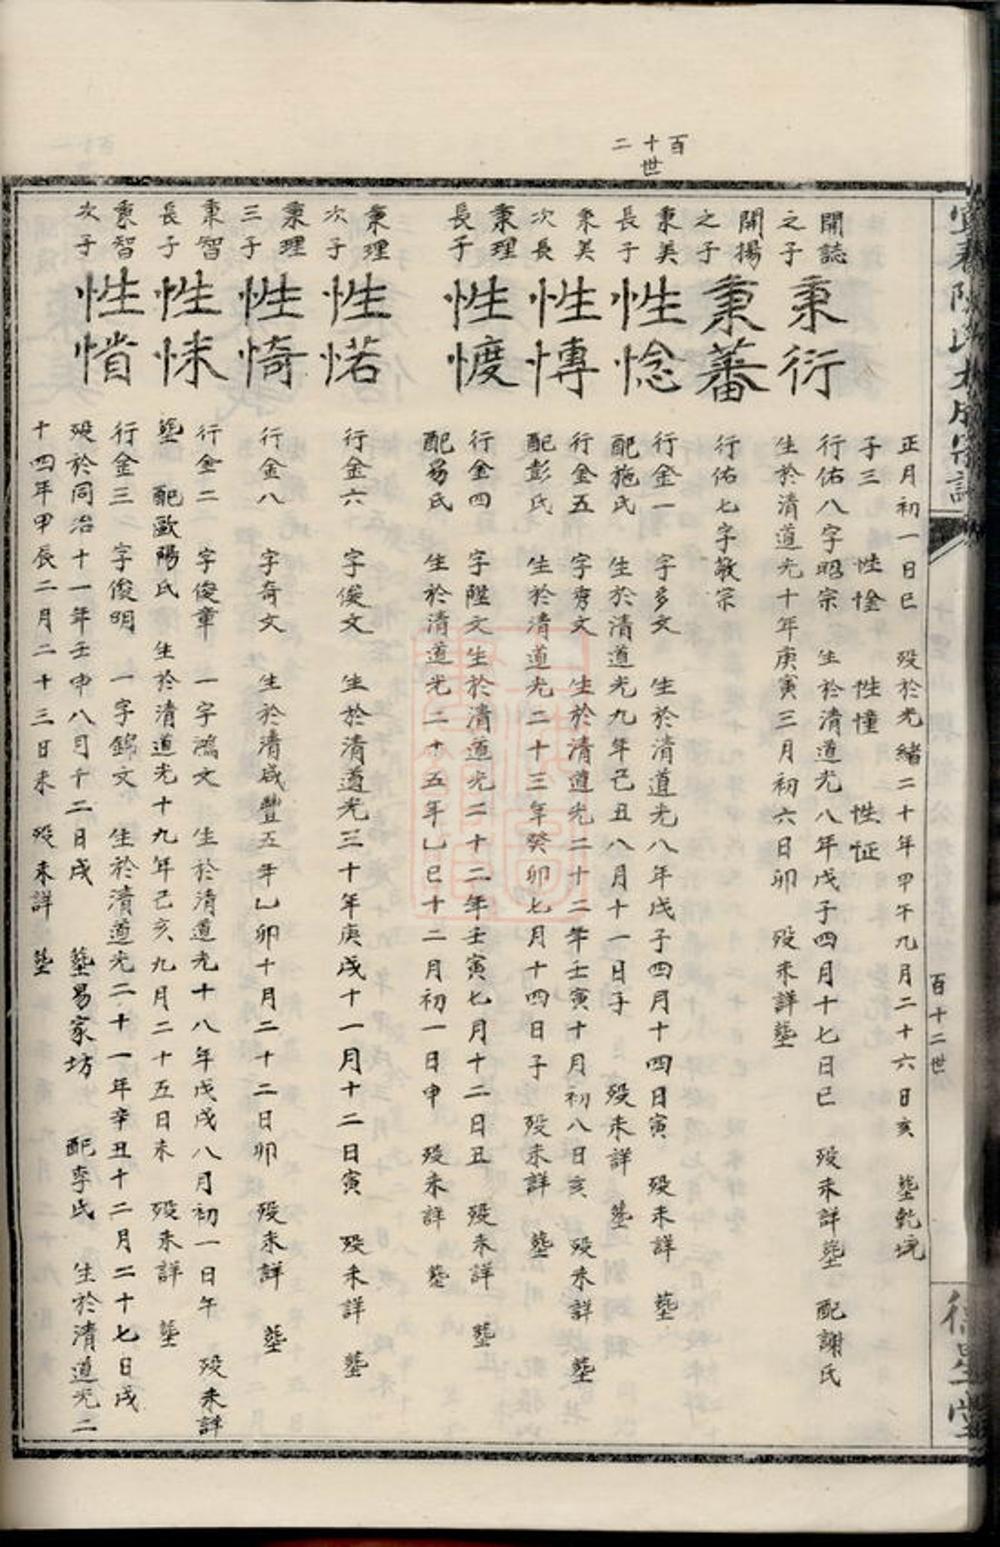 百十二世
宜春陳氏大成宗譜
百十二世
德星堂
正月初一日巳 歿於光緒二十年甲午九月二十六日亥 塟乾境
子三 性惍 性憧 性怔
開誌之子
秉衍
行佑八字昭宗 生於清道光八年戊子四月十七日巳 歿未詳塟 配謝氏
生於清道光十年庚寅三月初六日卯 歿未詳塟
開揚之子
秉蕃
行佑七字敏宗
秉美長子
性惗
行金一 字多文 生於清道光八年戊子四月十四日寅 歿未詳 塟
配施氏 生於清道光九年己丑八月十一日子 歿未詳 塟
秉美次長
性愽
行金五 字秀文 生於清道光二十二年壬寅十月初八日亥 歿未詳 塟
配彭氏 生於清道光二十三年癸卯七月十四日子 歿未詳 塟
秉理長子
性㦄
行金四 字陞文生於清道光二十二年壬寅七月十二日丑 歿未詳 塟
配易氏 生於清道光二十五年乙巳十二月初一日申 歿未詳 塟
秉理次子
性惹
行金六 字俊文 生於清道光三十年庚戌十一月十二日寅 歿未詳 塟
秉理三子
性㥓
行金八 字奇文 生於清咸豐五年乙卯十月二十二日卯 歿未詳 塟
秉智長子
性悚
行金二 字俊章 一字鴻文 生於清道光十八年戊戌八月初一日午 歿未詳
塟 配歐陽氏 生於清道光十九年己亥九月二十五日未 歿未詳 塟
秉智次子
性惜
行金三 字俊明 一字錦文 生於清道光二十一年辛丑十二月二十七日戌
歿於同治十一年壬申八月十二日戌 塟易家坊 配李氏 生於清道光二
十四年甲辰二月二十三日未 歿未詳 塟